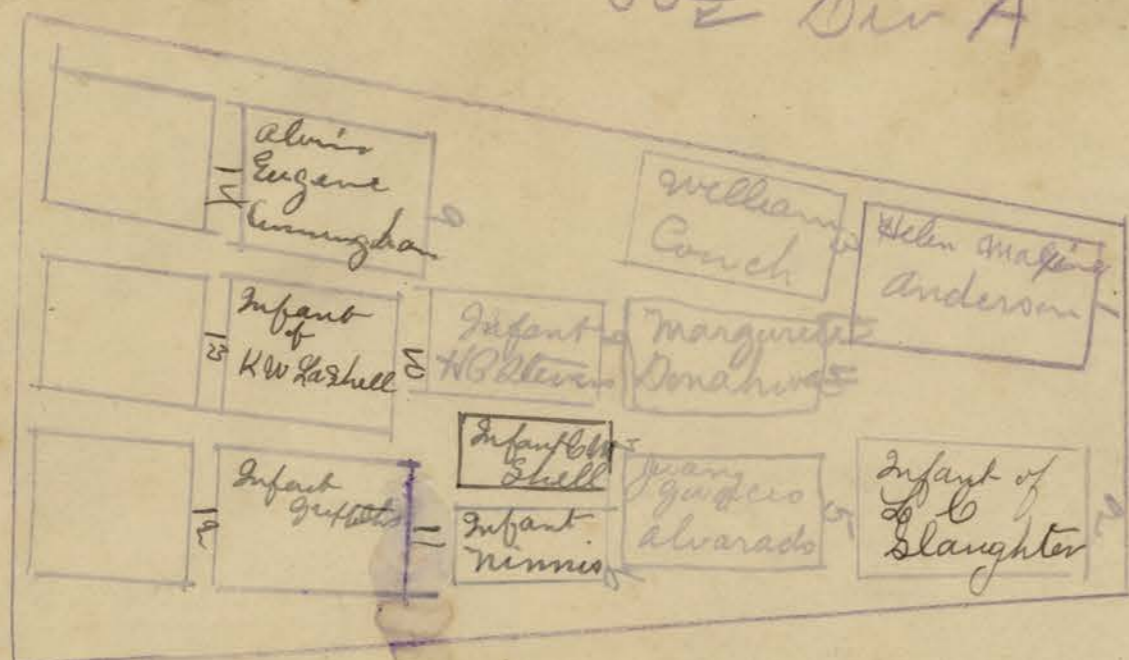 Div A
Alvin
Eugene
Cunningham
William
Couch
Helen Maxine
Anderson
Infant
of
K W LaShell
Infant
H C Stevens
Margurete
Donahue
Infant C M
Shell
Infant
Griffiths
Infant
Ninnis
Alvarado
Infant of
L C
Slaughter